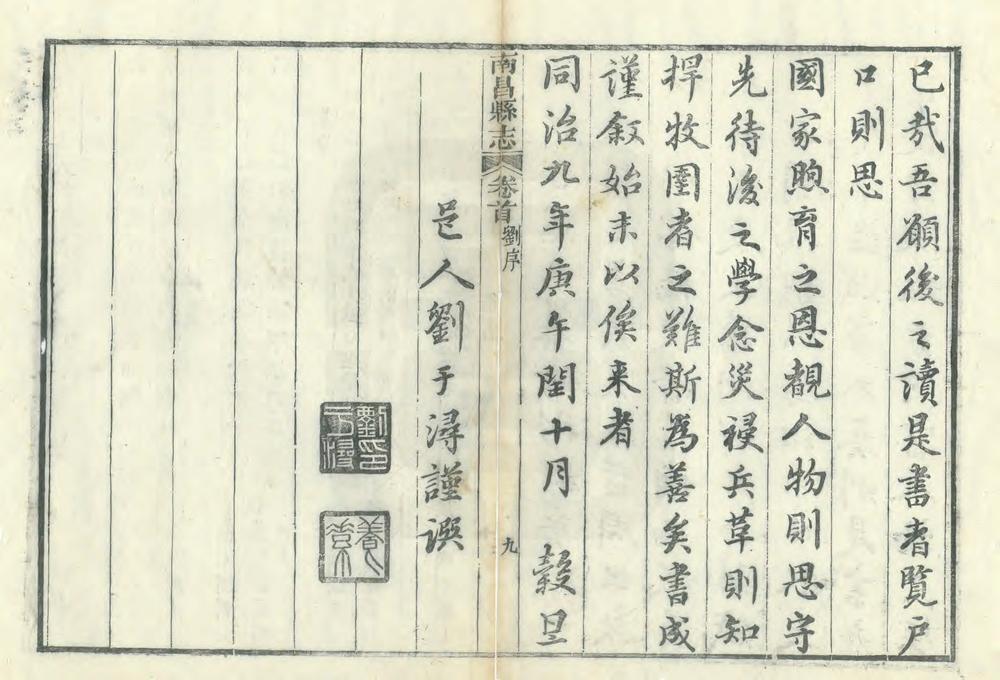 已哉吾願後之讀是書者覽戶
口則思
國家煦育之恩覩人物則思守
先待後之學念災祲兵革則知
捍牧圉者之難斯爲善矣書成
謹叙始末以俟来者
同治九年庚午閏十月 穀旦
南昌縣志 卷首 劉序 九
邑人劉于潯謹譔
劉于潯印
養素